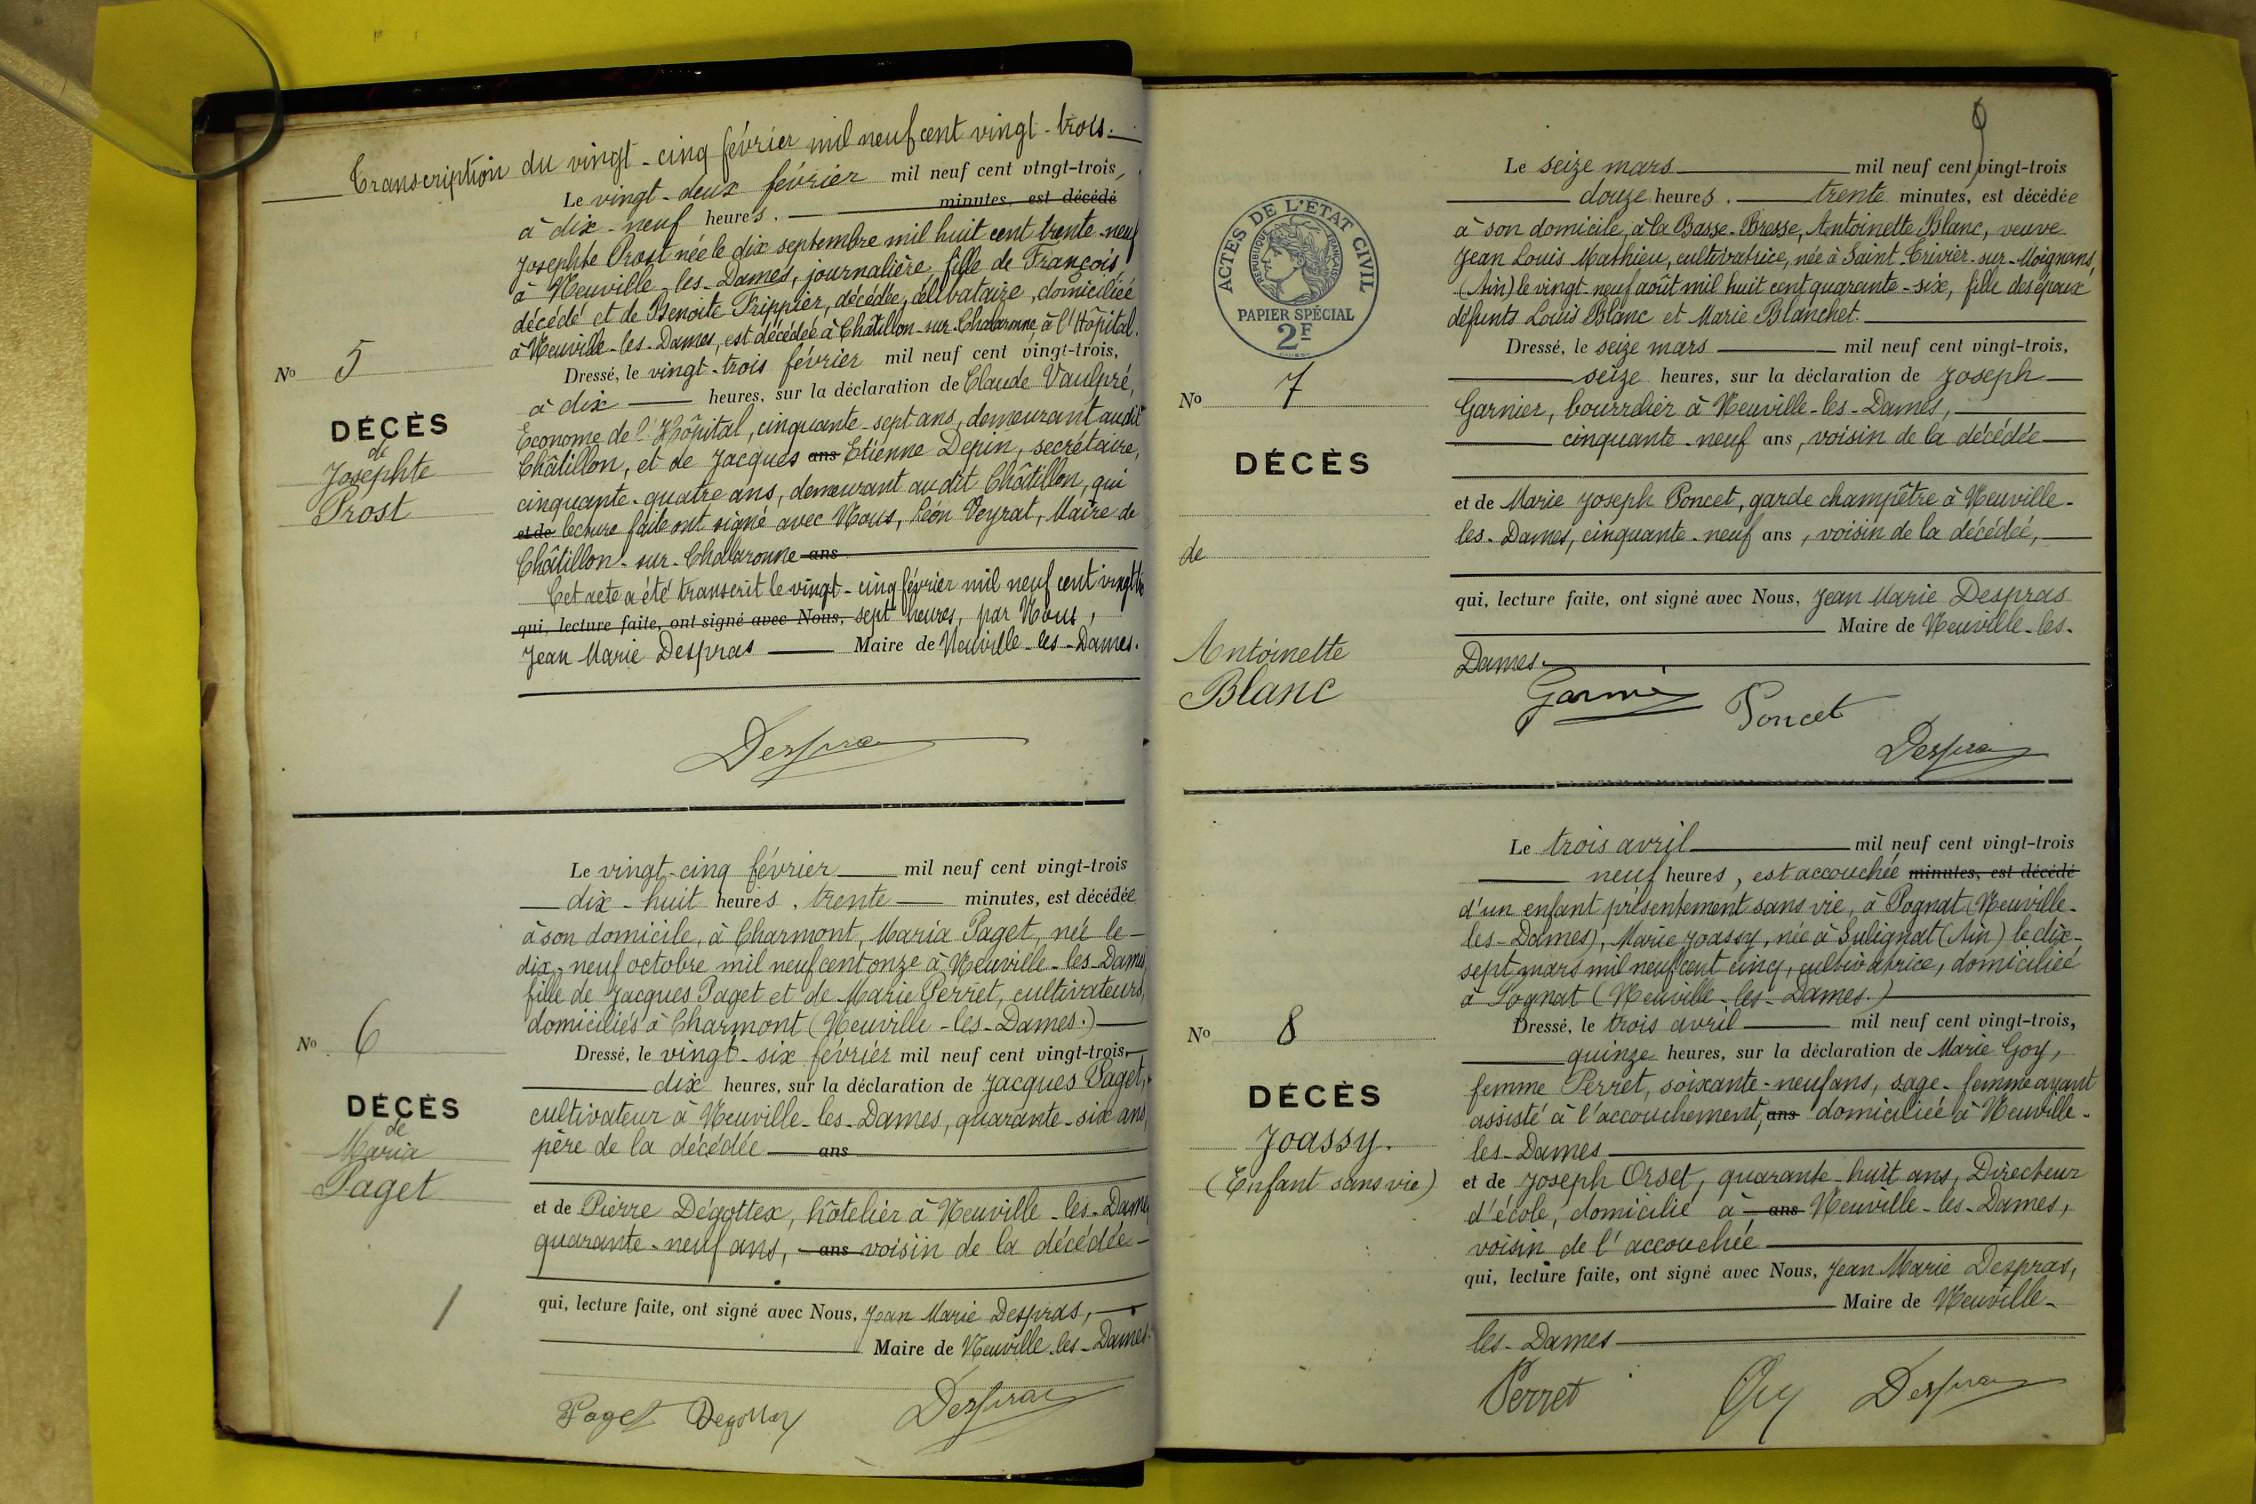 Transcription du vingt-cinq février mil neuf cent vingt-trois.
Le vingt-deux février mil neuf cent vingt-trois,
à dix-neuf heures. minutes, est décédé
Josephte Prost née le dix septembre mil huit cent trente-neuf
à Neuville-les-Dames, journalière, fille de François,
décédé et de Benoite Trippier, décédée, célibataire, domiciliée
à Neuville-les-Dames, est décédée à Châtillon-sur-Chalaronne à l'Hôpital.
Dressé, le vingt-trois février mil neuf cent vingt-trois,
à dix heures, sur la déclaration de Claude Vaulpré,
Econome de l'Hôpital, cinquante-sept ans, demeurant audit
Châtillon, et de Jacques ans Etienne Depin, secrétaire,
cinquante-quatre ans, demeurant au dit Châtillon, qui
et de lecture faite ont signé avec Nous, Léon Veyrat, Maire de
Châtillon-sur-Chalaronne ans
Cet acte a été transcrit le vingt-cinq février mil neuf cent vingt
qui, lecture faite, ont signé avec Nous, sept heures, par Nous,
Jean Marie Despras Maire de Neuville-les-Dames.
Despras
No 5
DÉCÈS
de
Josephte
Prost
Le vingt-cinq février mil neuf cent vingt-trois
dix-huit heures, trente minutes, est décédée
à son domicile, à Charmont, Maria Paget, née le
dix-neuf octobre mil neuf cent onze à Neuville-les-Dames
fille de Jacques Paget et de Marie Perret, cultivateurs,
domiciliés à Charmont (Neuville-les-Dames.)
Dressé, le vingt-six février mil neuf cent vingt-trois,
dix heures, sur la déclaration de Jacques Paget,
cultivateur à Neuville-les-Dames, quarante-six ans,
père de la décédée ans
et de Pierre Dégottex, hôtelier à Neuville-les-Dames
quarante-neuf ans, ans voisin de la décédée
qui, lecture faite, ont signé avec Nous, Jean Marie Despras,
Maire de Neuville-les-Dames.
Paget Degottex Despras
No 6
DÉCÈS
de
Maria
Paget
9
Le seize mars mil neuf cent vingt-trois
douze heures. trente minutes, est décédée
à son domicile, à la Basse-Bresse, Antoinette Blanc, veuve
Jean Louis Mathieu, cultivatrice, née à Saint-Trivier-sur-Moignans,
(Ain) le vingt-neuf août mil huit cent quarante-six, fille des époux
défunts Louis Blanc et Marie Blanchet.
Dressé, le seize mars mil neuf cent vingt-trois,
seize heures, sur la déclaration de Joseph
Garnier, bourrelier à Neuville-les-Dames,
cinquante-neuf ans, voisin de la décédée
et de Marie Joseph Poncet, garde champêtre à Neuville-
les-Dames, cinquante-neuf ans, voisin de la décédée,
qui, lecture faite, ont signé avec Nous, Jean Marie Despras
Maire de Neuville-les-
Dames.
Garnier Poncet
Despras
ACTES DE L'ETAT CIVIL
RÉPUBLIQUE FRANÇAISE
PAPIER SPÉCIAL
2F
No 7
DÉCÈS
de
Antoinette
Blanc
Le trois avril mil neuf cent vingt-trois
neuf heures, est accouchée minutes, est décédé
d'un enfant présentement sans vie, à Pognat (Neuville-
les-Dames), Marie Joassy, née à Sulignat (Ain) le dix-
sept mars mil neuf cent cinq, cultivatrice, domiciliée
à Pognat (Neuville-les-Dames.)
Dressé, le trois avril mil neuf cent vingt-trois,
quinze heures, sur la déclaration de Marie Goy,
femme Perret, soixante-neuf ans, sage-femme ayant
assisté à l'accouchement, ans domiciliée à Neuville-
les-Dames
et de Joseph Orset, quarante-huit ans, Directeur
d'école, domicilié à ans Neuville-les-Dames,
voisin de l'accouchée
qui, lecture faite, ont signé avec Nous, Jean Marie Despras,
Maire de Neuville-
les-Dames
Perret Despras
No 8
DÉCÈS
Joassy.
(Enfant sans vie)